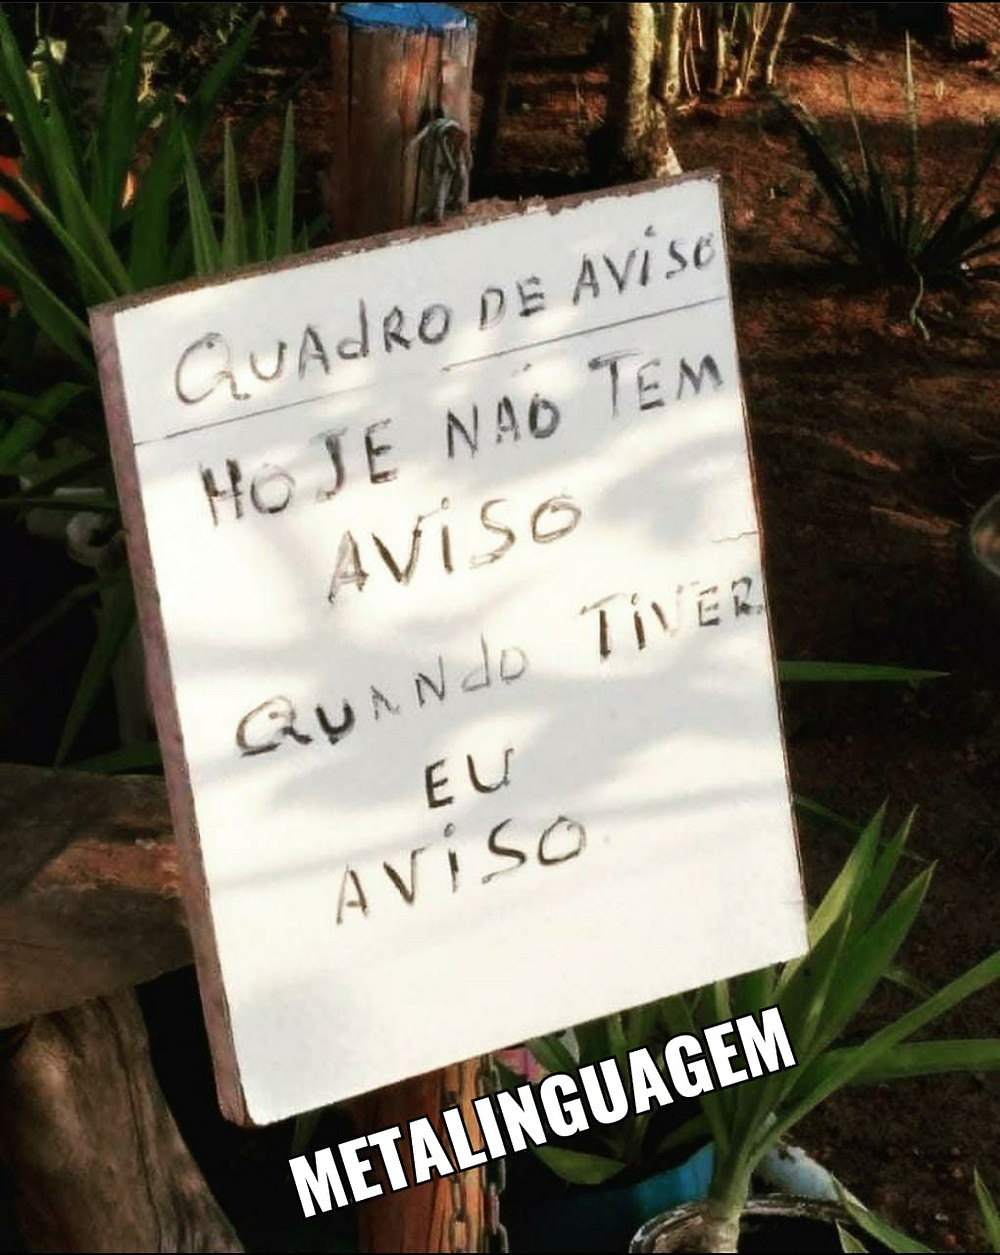 QUAdRO DE AViSO
HOJE NÃO TEM
AViSO
QUANdO TiVER
EU
AViSO
METALINGUAGEM